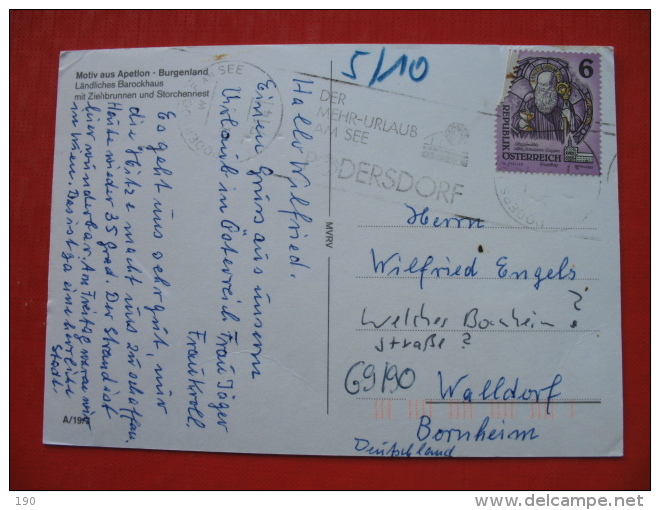 Motiv aus Apetlon · Burgenland
Ländliches Barockhaus
mit Ziehbrunnen und Storchennest
5/10
AM SEE
DER
MEHR-URLAUB
AM SEE
DERSDORF
6
REPUBLIK
ÖSTERREICH
Hallo Wilfried.
Einen Gruss aus unserm
Urlaub in Österreich Frau Jäger
Frau Kroll
Es geht uns sehr gut, nur
die Hitze macht uns zu schaffen.
Heute wieder 35 Grad. Der Strand ist
hier wunderbar. Am Freitag waren wir
in Wien. Das ist ja eine herrliche
Stadt.
MVRV
Herrn
Wilfried Engels
Welches Bonheim ?
straße ?
69/90
Walldorf
Bornheim
Deutschland
A/19
190
delcampe.net